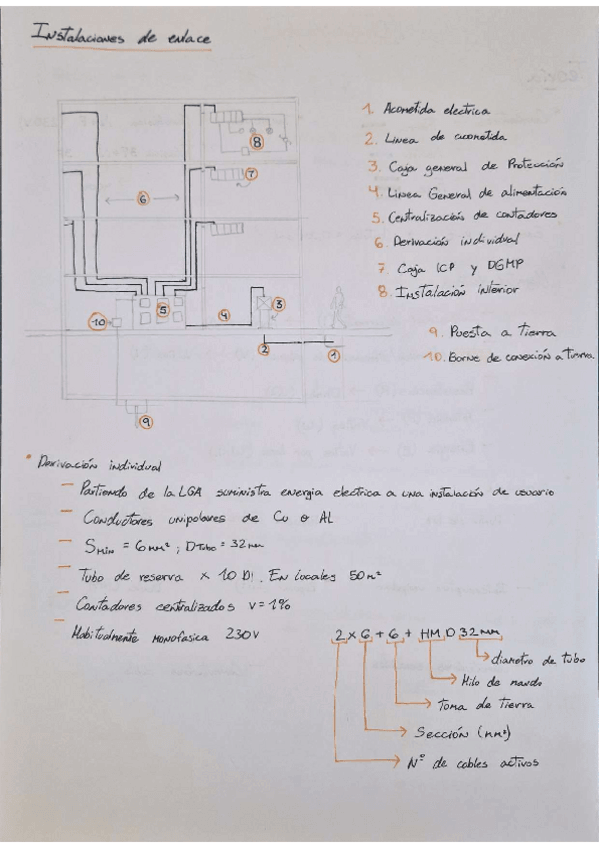 Instalaciones de enlace
1. Acometida electrica
2. Linea de acometida
3. Caja general de Protección
4. Linea General de alimentación
5. Centralización de contadores
6. Derivación individual
7. Caja ICP y DGMP
8. Instalación interior
9. Puesta a tierra
10. Borne de conexión a tierra
8
7
6
5
4
3
10
2
1
9
• Derivación individual
– Partiendo de la LGA suministra energia electrica a una instalación de usuario
– Conductores unipolares de Cu o AL
– Smin = 6mm²; DTubo = 32mm
– Tubo de reserva x 10 DI. En locales 50m²
– Contadores centralizados v=1%
– Habitualmente monofasica 230V
2 x 6 + 6 + HM D 32mm
diametro de tubo
Hilo de mando
Toma de tierra
Sección (mm²)
Nº de cables activos